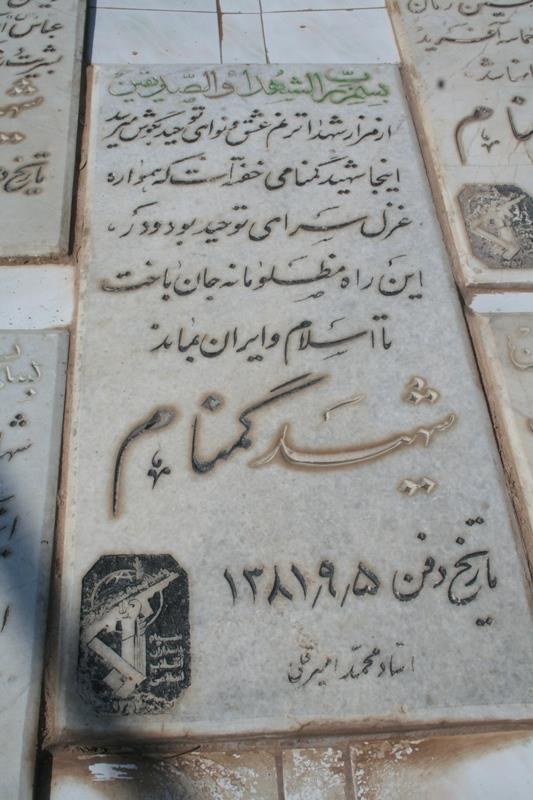 بسم رب الشهداء والصدیقین
از مزار شهدا ترنم عشق و نوای توحید بگوش میرسد
اینجا شهید گمنامی خفته است که همواره
غزل سرای توحید بود و در
این راه مظلومانه جان باخت
تا اسلام و ایران بماند
شهید گمنام
تاریخ دفن ۱۳۸۱٫۹٫۵
سپاه
پاسداران
انقلاب
اسلامی
استاد محمد امیرقلی